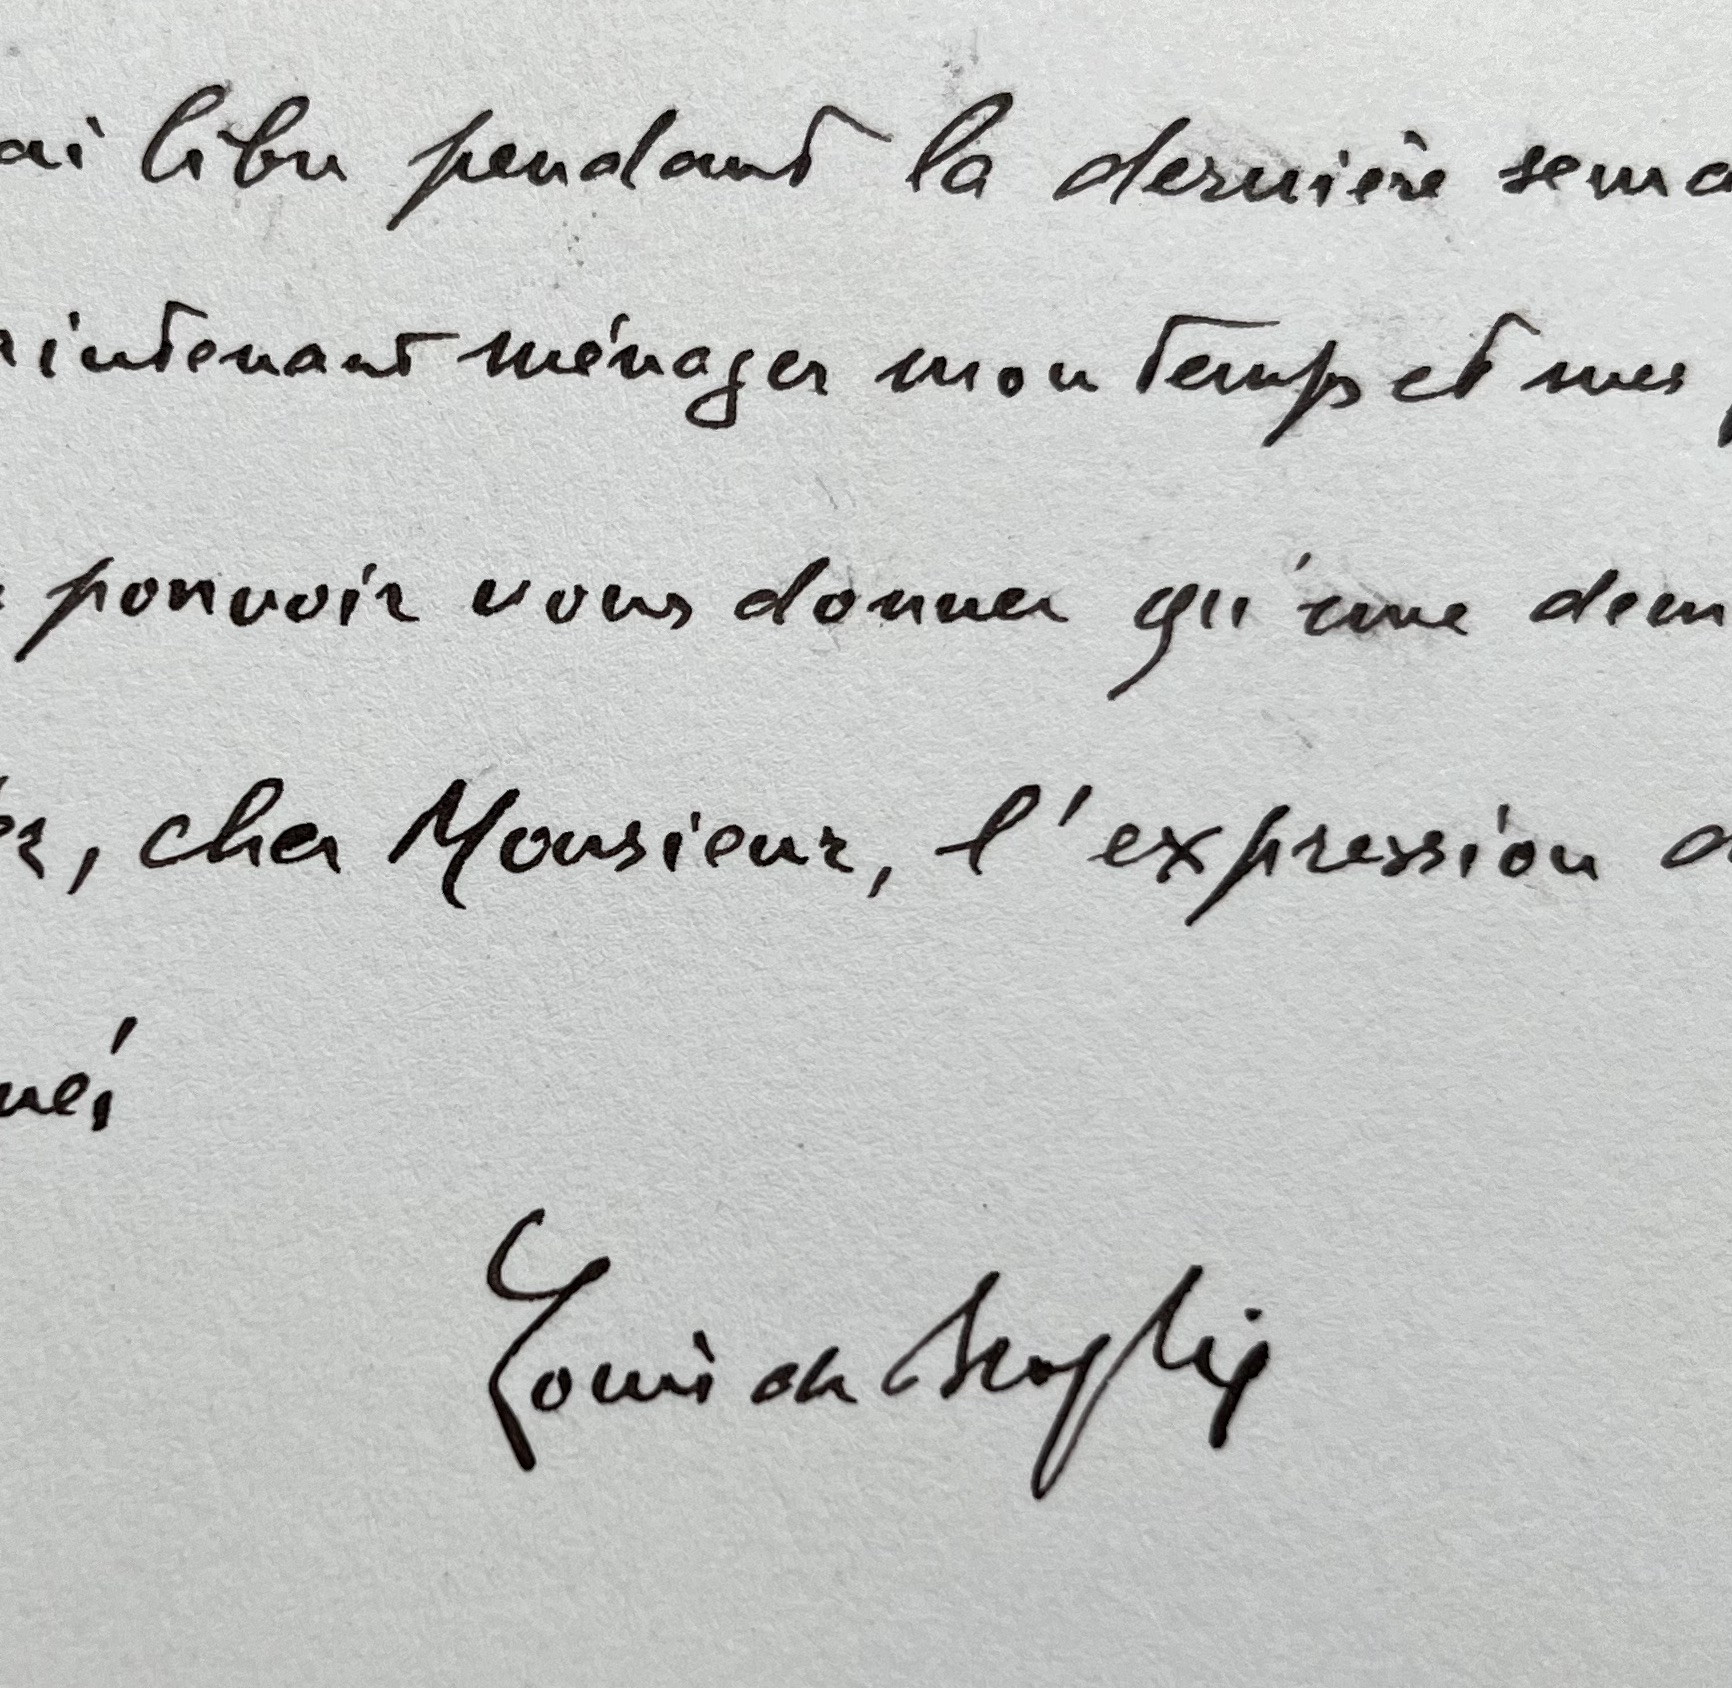 ai libre pendant la dernière sema
aintenant ménager mon temps et mes
pouvoir vous donner qu'une dem
er, cher Monsieur, l'expression d
ués
Louis de Broglie